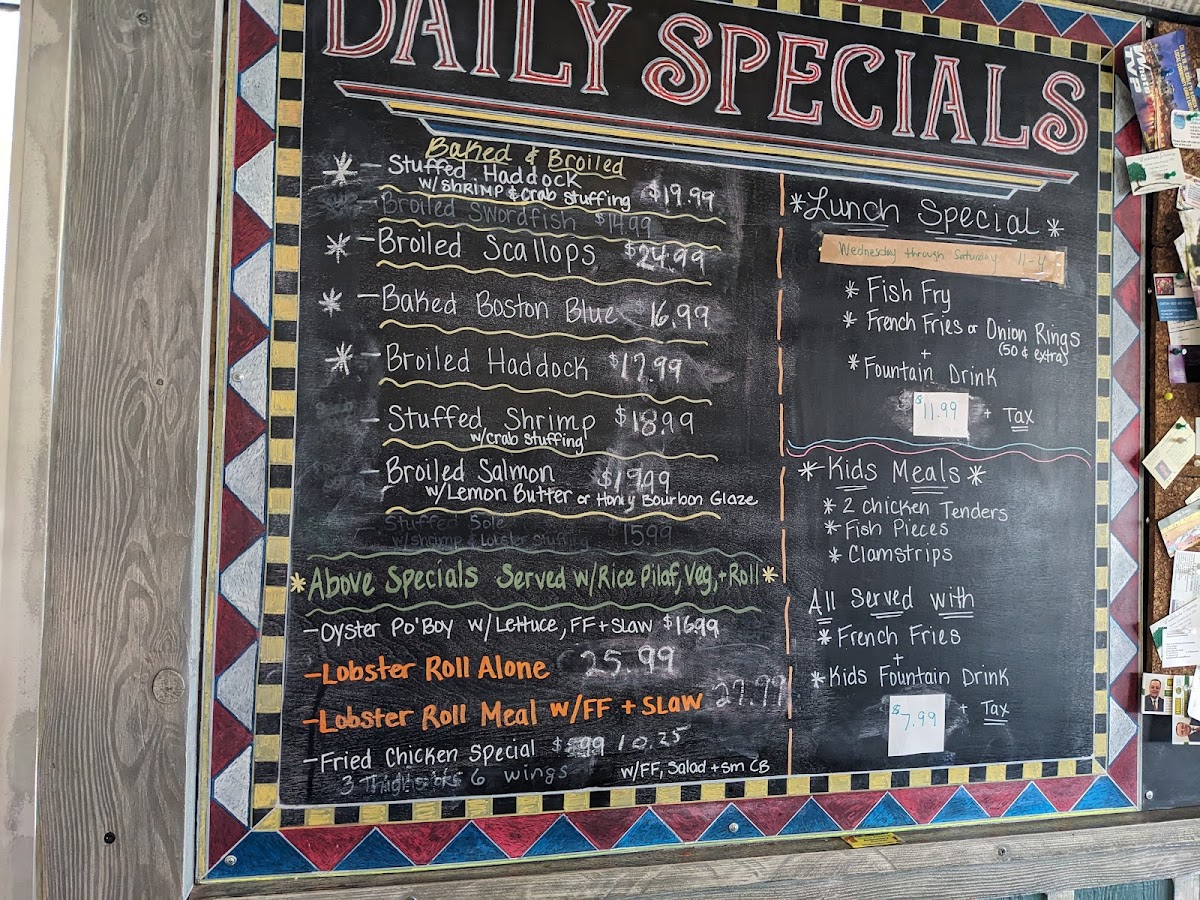 DAILY SPECIALS
Baked & Broiled
* - Stuffed Haddock
w/shrimp & crab stuffing $19.99
- Broiled Swordfish $14.99
* - Broiled Scallops $24.99
* - Baked Boston Blue 16.99
* - Broiled Haddock $17.99
- Stuffed Shrimp $18.99
w/crab stuffing
- Broiled Salmon $19.99
w/Lemon Butter or Honey Bourbon Glaze
- Stuffed Sole $15.99
w/shrimp & Lobster Stuffing
*Above Specials Served w/Rice Pilaf, Veg, + Roll*
-Oyster Po'Boy w/Lettuce, FF + Slaw $16.99
-Lobster Roll Alone 25.99
-Lobster Roll Meal w/FF + SLAW 27.99
-Fried Chicken Special 10.25
6 wings w/FF, Salad + sm CB
*Lunch Special*
Wednesday through Saturday 11-4
* Fish Fry
* French Fries or Onion Rings
(50¢ extra)
+
*Fountain Drink
$11.99 + Tax
*Kids Meals*
* 2 Chicken Tenders
* Fish Pieces
* Clamstrips
All Served with
* French Fries
+
*Kids Fountain Drink
$7.99 + Tax